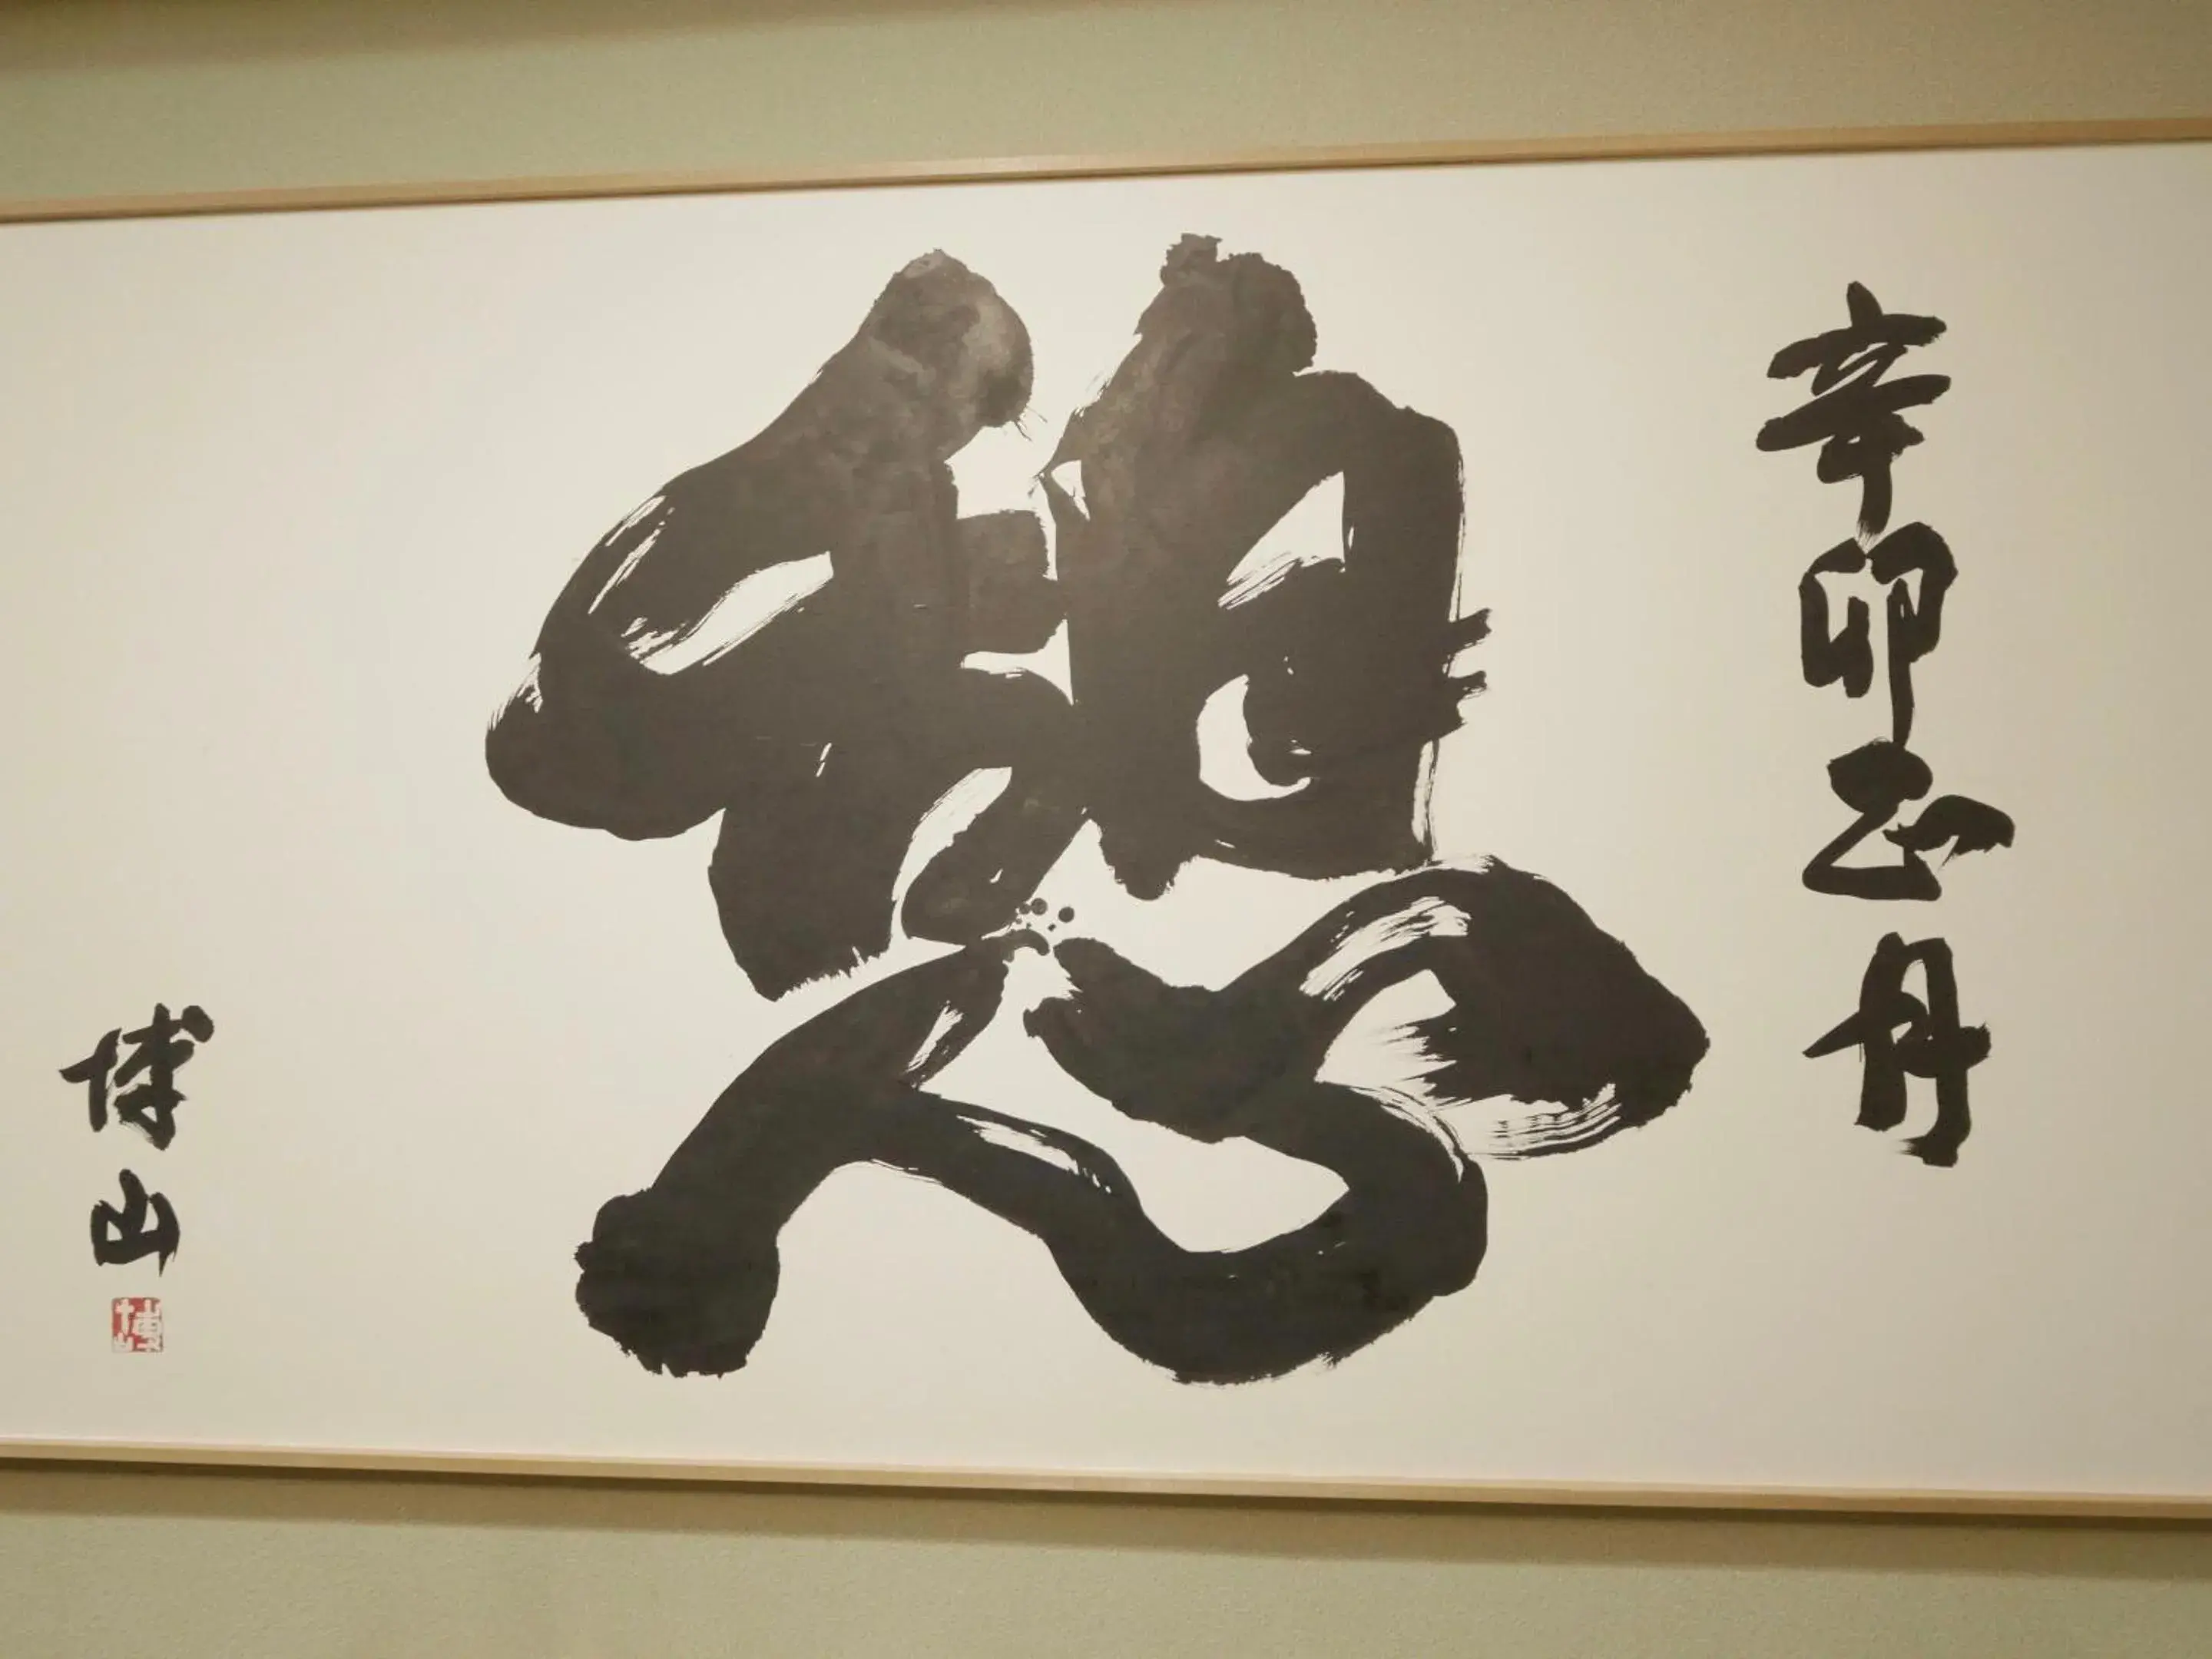 辛卯正月
憩
博山
博山